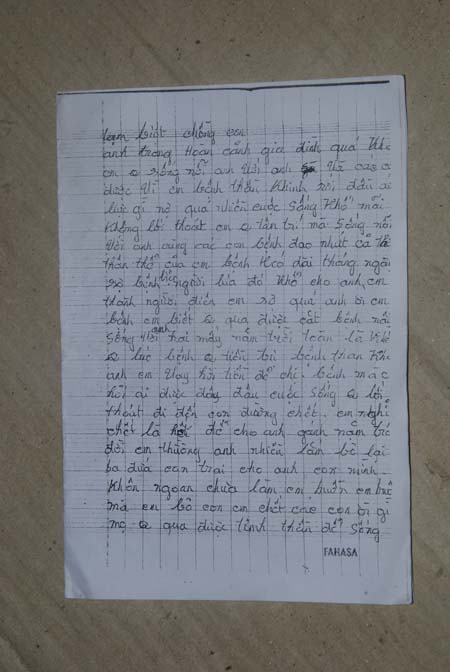 tạm biệt chồng con
anh trong hoàn cảnh gia đình quá khó
em sống nỗi anh với anh và các
được vì em bệnh thần kinh rồi đâu ai
lực gì nỡ quá nhiên cuộc sống khổ mãi
không lối thoát em tân trí mà sống nỗi
với anh cùng các con bệnh đao nhứt cả
thân thể của em bệnh kéo dài tháng ngài
sợ bệnh liên người lúa đó khổ cho anh em
thành người điên em sợ quá anh ơi em
bệnh em biết qua được cất bệnh nỗi
sống với anh hai mấy năm trời toàn là khổ
lúc bệnh tiền trị bệnh than khi
anh em vay hỏi tiền để chị bệnh mắc
hỏi ai được đây đâu cuộc sống lối
thoát đi đến con đường chết. em nghỉ
chết là hết để cho anh gánh nắm trố
đời em thường anh nhiều lắm bỏ lại
ba đứa con trai cho anh con mình
khôn ngoan chưa làm em buồn em
mà em bỏ con em chết các con ơi gì
mẹ qua được tinh thần để sống
FAHASA